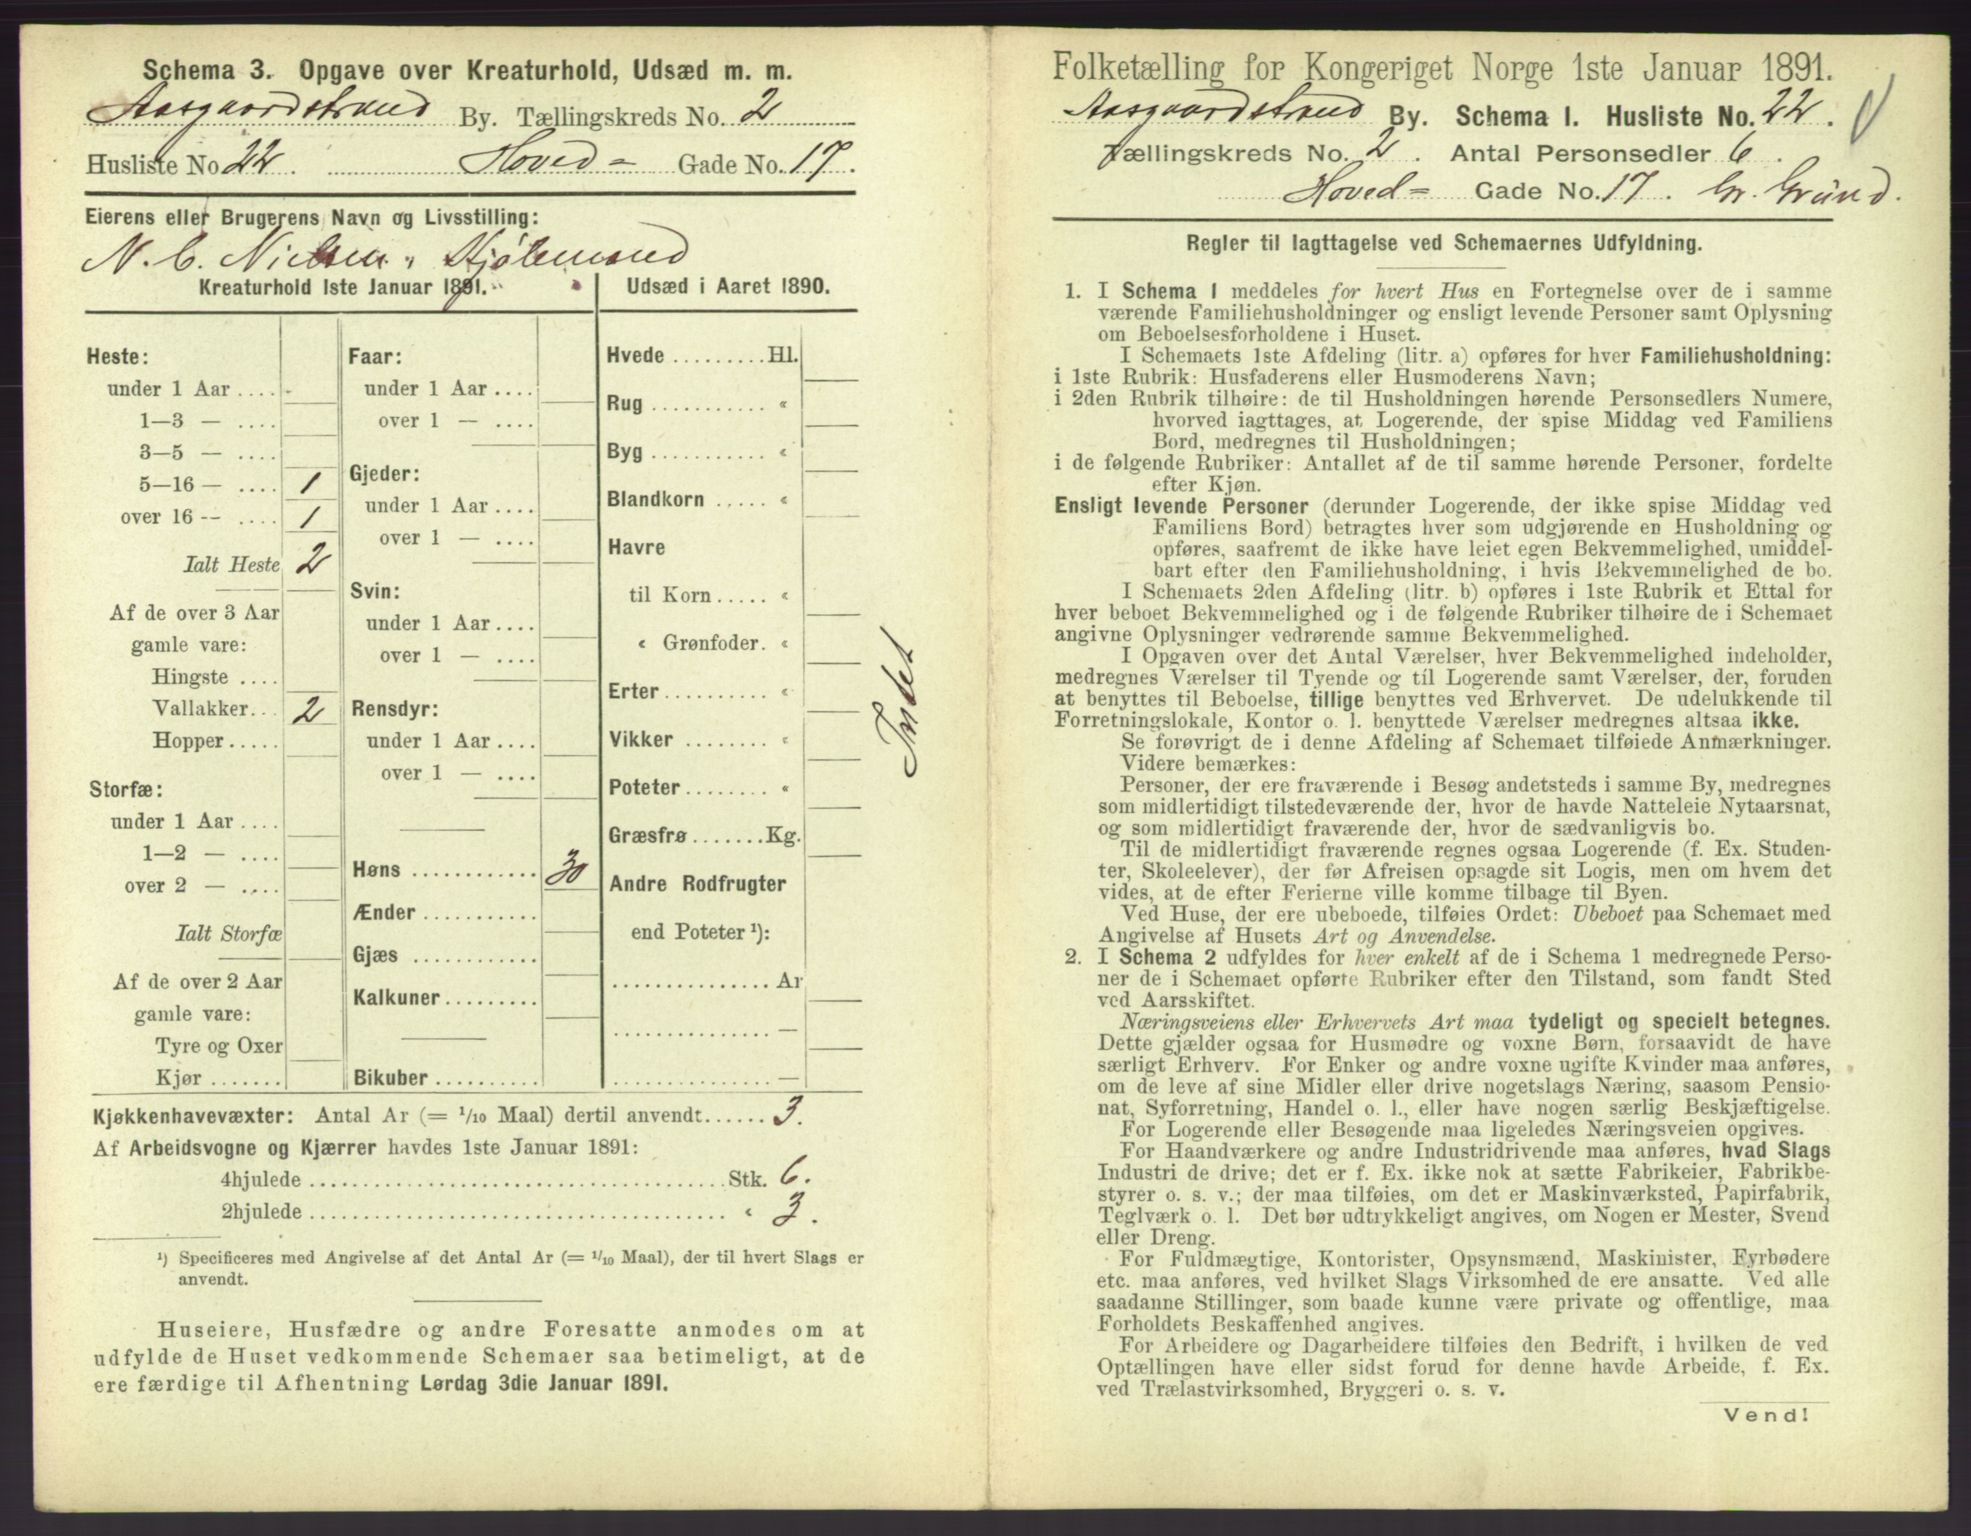 Schema 3. Opgave over Kreaturhold, Udsæd m. m.
Aasgaardstrand By. Tællingskreds No. 2
Husliste No 22. Hoved= Gade No. 17.
Eierens eller Brugerens Navn og Livsstilling:
N. C. Nielsen, Kjøbmand
Kreaturhold 1ste Januar 1891.
Heste:
under 1 Aar ....
1—3 — ....
3—5 — ....
5—16 — .... 1
over 16 -- .... 1
Ialt Heste 2
Af de over 3 Aar
gamle vare:
Hingste ....
Vallakker.. 2
Hopper.....
Storfæ:
under 1 Aar ....
1—2 — ....
over 2 — ....
Ialt Storfæ
Af de over 2 Aar
gamle vare:
Tyre og Oxer
Kjør .......
Faar:
under 1 Aar ....
over 1 — ....
Gjeder:
under 1 Aar ....
over 1 — ....
Svin:
under 1 Aar ....
over 1 — ....
Rensdyr:
under 1 Aar ....
over 1 — ....
Høns ............ 30
Ænder ...........
Gjæs ............
Kalkuner .........
Bikuber ..........
Udsæd i Aaret 1890.
Hvede ......... Hl.
Rug ........... «
Byg ........... «
Blandkorn ..... «
Havre
til Korn ..... «
« Grønfoder. «
Erter .......... «
Vikker ........ «
Poteter ........ «
Græsfrø ....... Kg.
Andre Rodfrugter
end Poteter ¹):
............... Ar
............... —
............... —
Intet
Kjøkkenhavevæxter: Antal Ar (= 1/10 Maal) dertil anvendt...... 3.
Af Arbeidsvogne og Kjærrer havdes 1ste Januar 1891:
4hjulede ..................................... Stk. 6.
2hjulede ..................................... « 3.
¹) Specificeres med Angivelse af det Antal Ar (= 1/10 Maal), der til hvert Slags er
anvendt.
Huseiere, Husfædre og andre Foresatte anmodes om at
udfylde de Huset vedkommende Schemaer saa betimeligt, at de
ere færdige til Afhentning Lørdag 3die Januar 1891.
Folketælling for Kongeriget Norge 1ste Januar 1891.
Aasgaardstrand By. Schema I. Husliste No. 22.
Tællingskreds No. 2. Antal Personsedler 6.
Hoved= Gade No. 17. Gr. Grund.
Regler til Iagttagelse ved Schemaernes Udfyldning.
1. I Schema 1 meddeles for hvert Hus en Fortegnelse over de i samme
værende Familiehusholdninger og ensligt levende Personer samt Oplysning
om Beboelsesforholdene i Huset.
I Schemaets 1ste Afdeling (litr. a) opføres for hver Familiehusholdning:
i 1ste Rubrik: Husfaderens eller Husmoderens Navn;
i 2den Rubrik tilhøire: de til Husholdningen hørende Personsedlers Numere,
hvorved iagttages, at Logerende, der spise Middag ved Familiens
Bord, medregnes til Husholdningen;
i de følgende Rubriker: Antallet af de til samme hørende Personer, fordelte
efter Kjøn.
Ensligt levende Personer (derunder Logerende, der ikke spise Middag ved
Familiens Bord) betragtes hver som udgjørende en Husholdning og
opføres, saafremt de ikke have leiet egen Bekvemmelighed, umiddel-
bart efter den Familiehusholdning, i hvis Bekvemmelighed de bo.
I Schemaets 2den Afdeling (litr. b) opføres i 1ste Rubrik et Ettal for
hver beboet Bekvemmelighed og i de følgende Rubriker tilhøire de i Schemaet
angivne Oplysninger vedrørende samme Bekvemmelighed.
I Opgaven over det Antal Værelser, hver Bekvemmelighed indeholder,
medregnes Værelser til Tyende og til Logerende samt Værelser, der, foruden
at benyttes til Beboelse, tillige benyttes ved Erhvervet. De udelukkende til
Forretningslokale, Kontor o. l. benyttede Værelser medregnes altsaa ikke.
Se forøvrigt de i denne Afdeling af Schemaet tilføiede Anmærkninger.
Videre bemærkes:
Personer, der ere fraværende i Besøg andetsteds i samme By, medregnes
som midlertidigt tilstedeværende der, hvor de havde Natteleie Nytaarsnat,
og som midlertidigt fraværende der, hvor de sædvanligvis bo.
Til de midlertidigt fraværende regnes ogsaa Logerende (f. Ex. Studen-
ter, Skoleelever), der før Afreisen opsagde sit Logis, men om hvem det
vides, at de efter Ferierne ville komme tilbage til Byen.
Ved Huse, der ere ubeboede, tilføies Ordet: Ubeboet paa Schemaet med
Angivelse af Husets Art og Anvendelse.
2. I Schema 2 udfyldes for hver enkelt af de i Schema 1 medregnede Perso-
ner de i Schemaet opførte Rubriker efter den Tilstand, som fandt Sted
ved Aarsskiftet.
Næringsveiens eller Erhvervets Art maa tydeligt og specielt betegnes.
Dette gjælder ogsaa for Husmødre og voxne Børn, forsaavidt de have
særligt Erhverv. For Enker og andre voxne ugifte Kvinder maa anføres,
om de leve af sine Midler eller drive nogetslags Næring, saasom Pensio-
nat, Syforretning, Handel o. l., eller have nogen særlig Beskjæftigelse.
For Logerende eller Besøgende maa ligeledes Næringsveien opgives.
For Haandværkere og andre Industridrivende maa anføres, hvad Slags
Industri de drive; det er f. Ex. ikke nok at sætte Fabrikeier, Fabrikbe-
styrer o. s. v.; der maa tilføies, om det er Maskinværksted, Papirfabrik,
Teglværk o. l. Det bør udtrykkeligt angives, om Nogen er Mester, Svend
eller Dreng.
For Fuldmægtige, Kontorister, Opsynsmænd, Maskinister, Fyrbødere
etc. maa anføres, ved hvilket Slags Virksomhed de ere ansatte. Ved alle
saadanne Stillinger, som baade kunne være private og offentlige, maa
Forholdets Beskaffenhed angives.
For Arbeidere og Dagarbeidere tilføies den Bedrift, i hvilken de ved
Optællingen have eller sidst forud for denne havde Arbeide, f. Ex.
ved Trælastvirksomhed, Bryggeri o. s. v.
Vend!